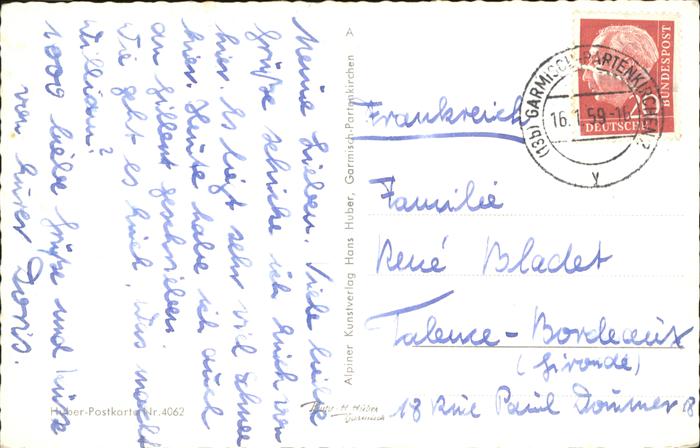 Meine Lieben, Viele liebe
Grüße schicke ich Euch von
hier. Es liegt sehr viel Schnee
hier. Heute habe ich auch
an Gillent geschrieben.
Wie geht es Euch, Was macht
William?
1000 liebe Grüße und Küsse
von Eurer Doris.
A
Alpiner Kunstverlag Hans Huber, Garmisch-Partenkirchen
Huber-Postkarte Nr. 4062
DEUTSCHE
BUNDESPOST
(13b) GARMISCH-PARTENKIRCHEN 2
16.1.59-16
y
Frankreich
Familie
René Bladet
Talence-Bordeaux
(Gironde)
18 Rue Paul Doumer 18